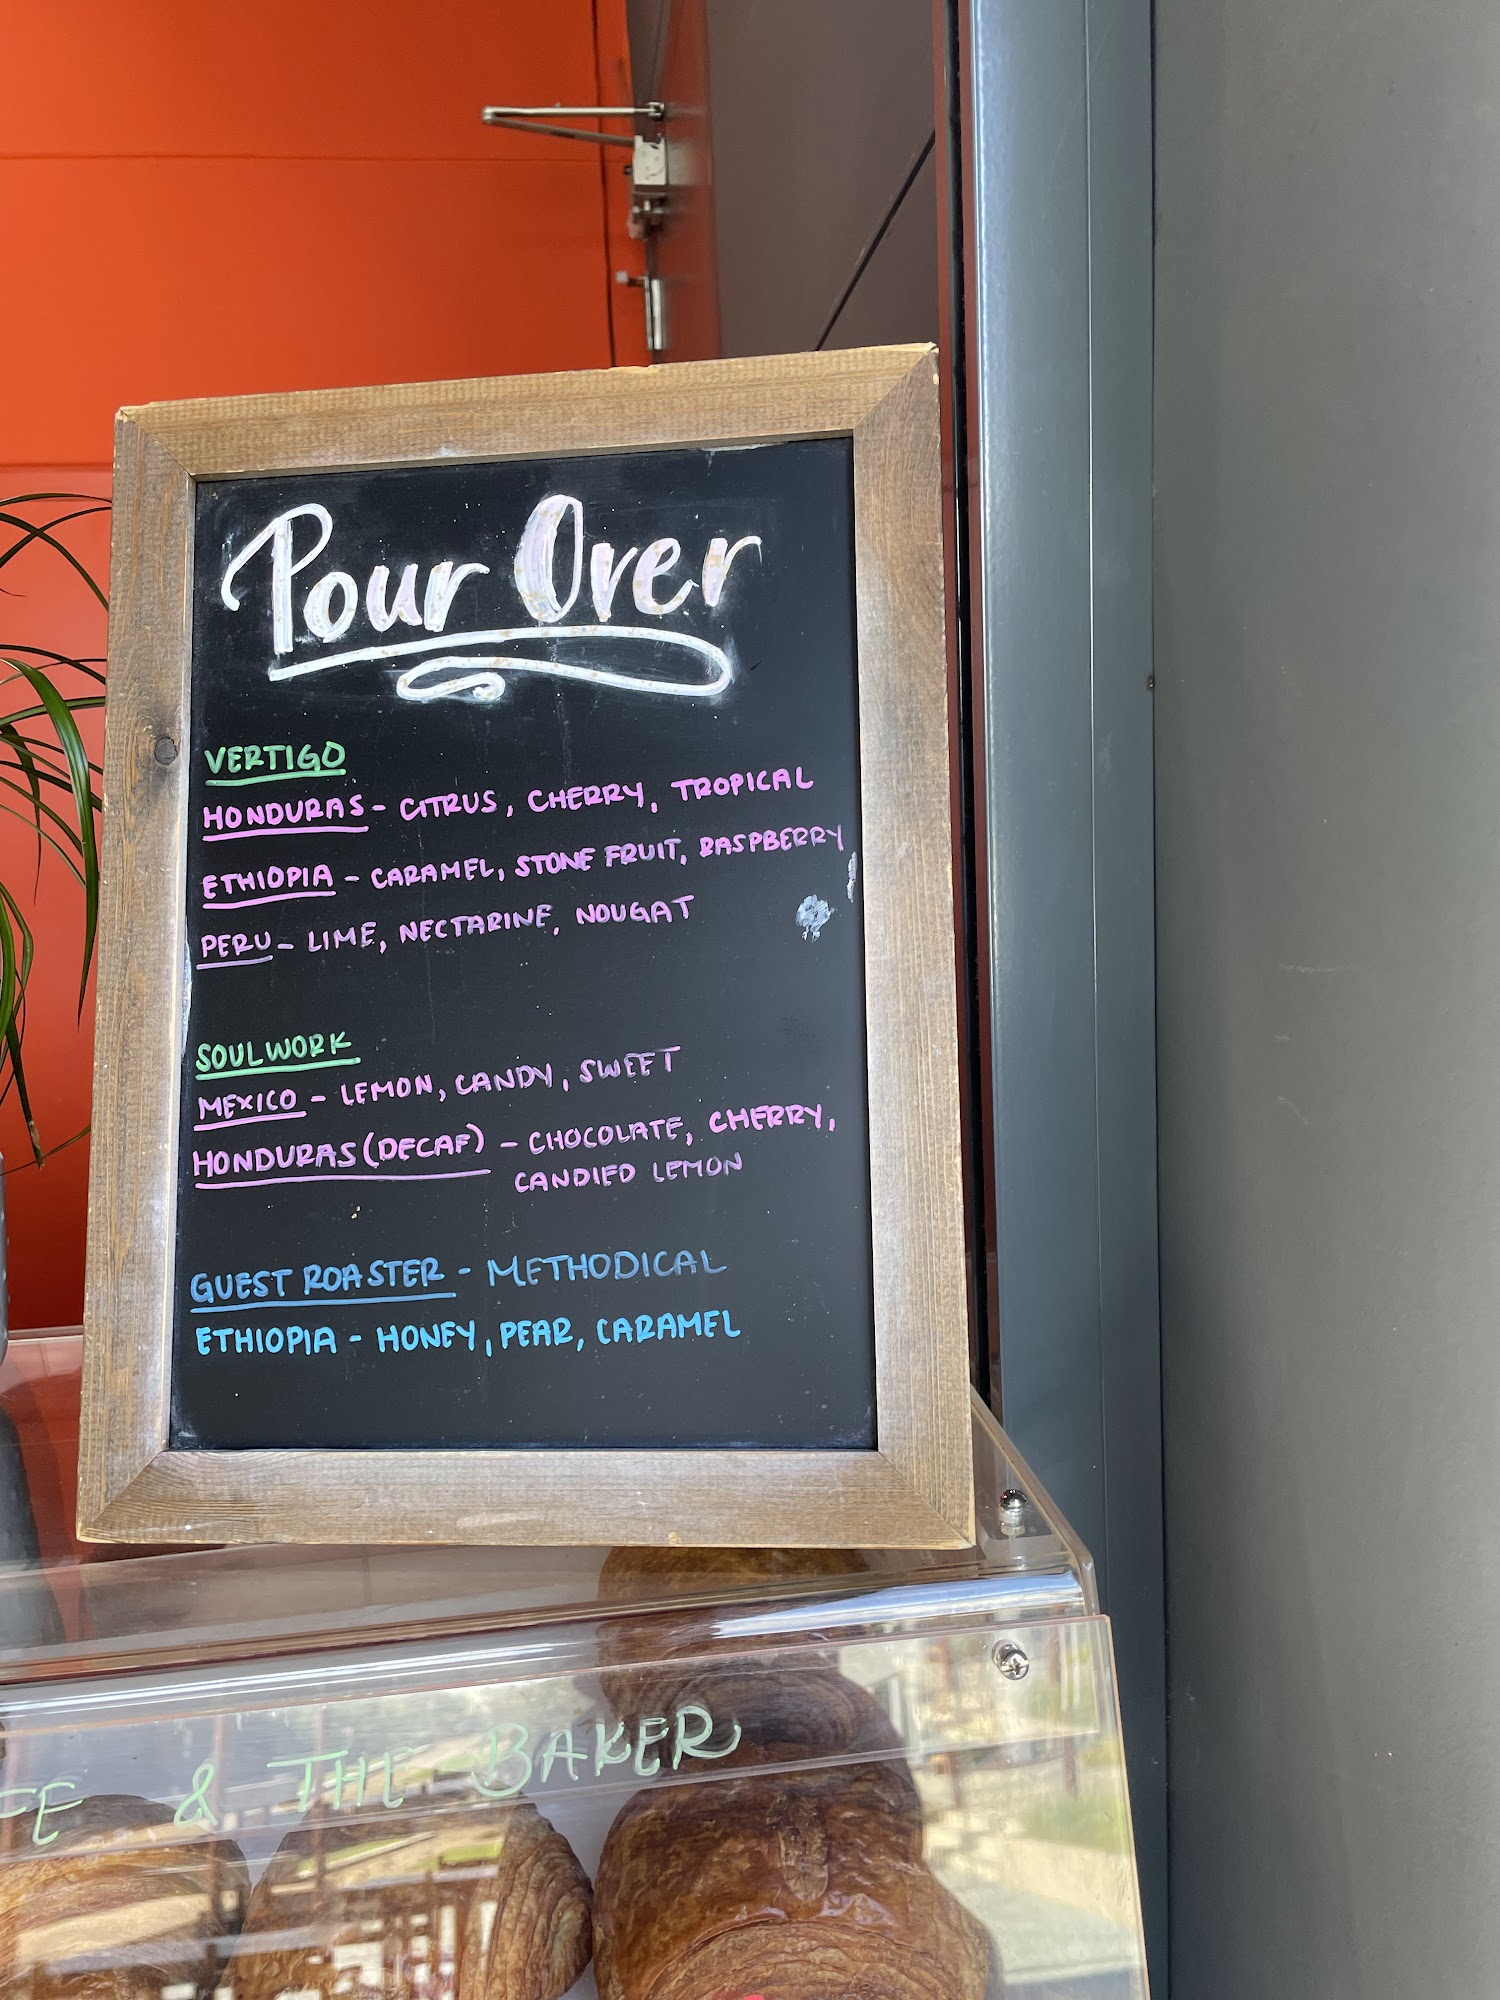 Pour Over
VERTIGO
HONDURAS - CITRUS, CHERRY, TROPICAL
ETHIOPIA - CARAMEL, STONE FRUIT, RASPBERRY
PERU - LIME, NECTARINE, NOUGAT
SOULWORK
MEXICO - LEMON, CANDY, SWEET
HONDURAS (DECAF) - CHOCOLATE, CHERRY,
CANDIED LEMON
GUEST ROASTER - METHODICAL
ETHIOPIA - HONEY, PEAR, CARAMEL
& THE BAKER